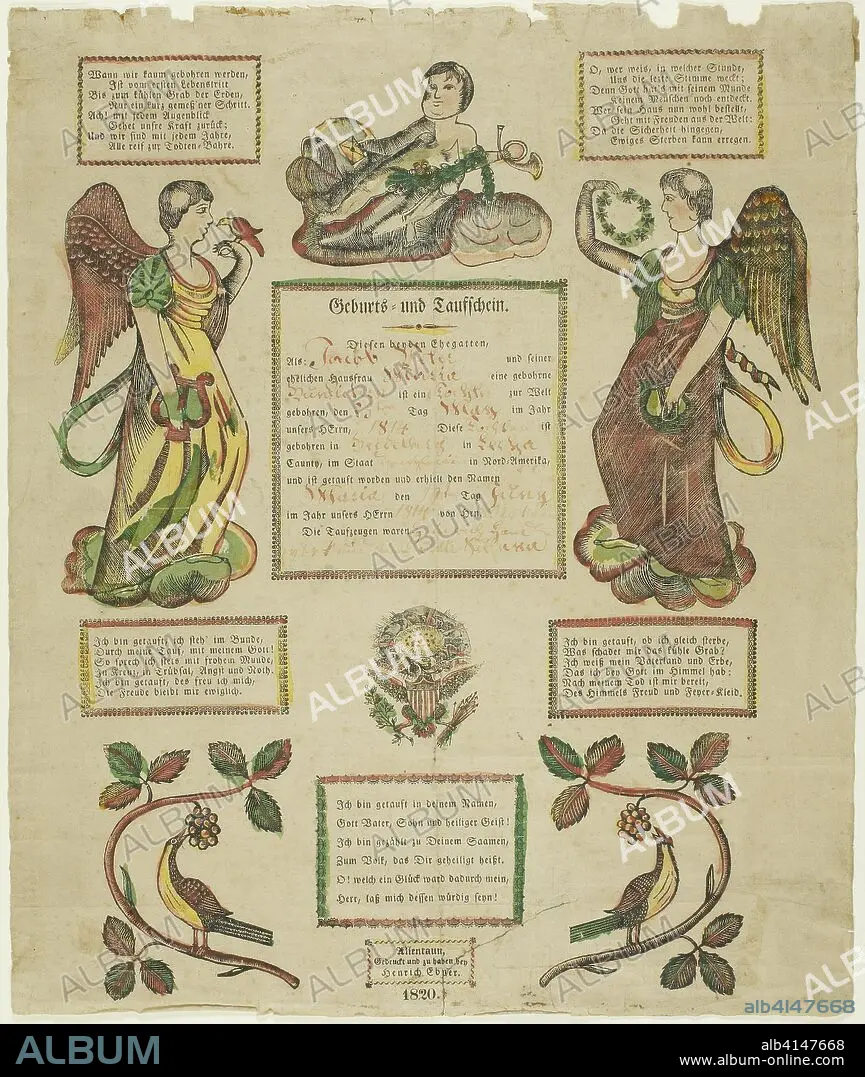 Wann wir kaum gebohren werden,
Ist vom ersten Lebenstritt
Bis zum kühlen Grab der Erden,
Nur ein kurz gemeß'ner Schritt.
Ach! mit jedem Augenblick
Gehet unsre Kraft zurück;
Und wir sind mit jedem Jahre,
Alle reif zur Todten-Bahre.
O, wer weis, in welcher Stunde,
Uns die lezte Stimme weckt;
Denn Gott hat's mit seinem Munde
Keinem Menschen noch entdeckt.
Wer sein Haus nun wohl bestellt,
Geht mit Freuden aus der Welt:
Da die Sicherheit hingegen,
Ewiges Sterben kann erregen.
Geburts- und Taufschein.
Diesen beyden Ehegatten,
Als: Jacob und seiner
ehelichen Hausfrau Maria eine gebohrne
ist ein zur Welt
gebohren, den Tag May im Jahr
unsers HErrn, 1814 Diese ist
gebohren in in
Caunty, im Staat in Nord-Amerika,
und ist getauft worden und erhielt den Namen
Maria den Tag
im Jahr unsers HErrn 1814 von Hrn.
Die Taufzeugen waren
Ich bin getauft, ich steh' im Bunde,
Durch meine Tauf, mit meinem Gott!
So sprech ich stets mit frohem Munde,
In Kreuz, in Trübsal, Angst und Noth.
Ich bin getauft, des freu ich mich,
Die Freude bleibt mir ewiglich.
Ich bin getauft, ob ich gleich sterbe,
Was schadet mir das kühle Grab?
Ich weiß mein Vaterland und Erbe,
Das ich bey Gott im Himmel hab;
Nach meinem Tod ist mir bereit,
Des Himmels Freud und Feyer-Kleid.
Ich bin getauft in deinem Namen,
Gott Vater, Sohn und heiliger Geist!
Ich bin gezählt zu Deinem Saamen,
Zum Volk, das Dir geheiligt heißt.
O! welch ein Glück ward dadurch mein,
Herr, laß mich dessen würdig seyn!
Allentaun,
Gedruckt und zu haben bey
Henrich Ebner.
1820.
alb4147668
ALBUM
alb4147668
www.album-online.com